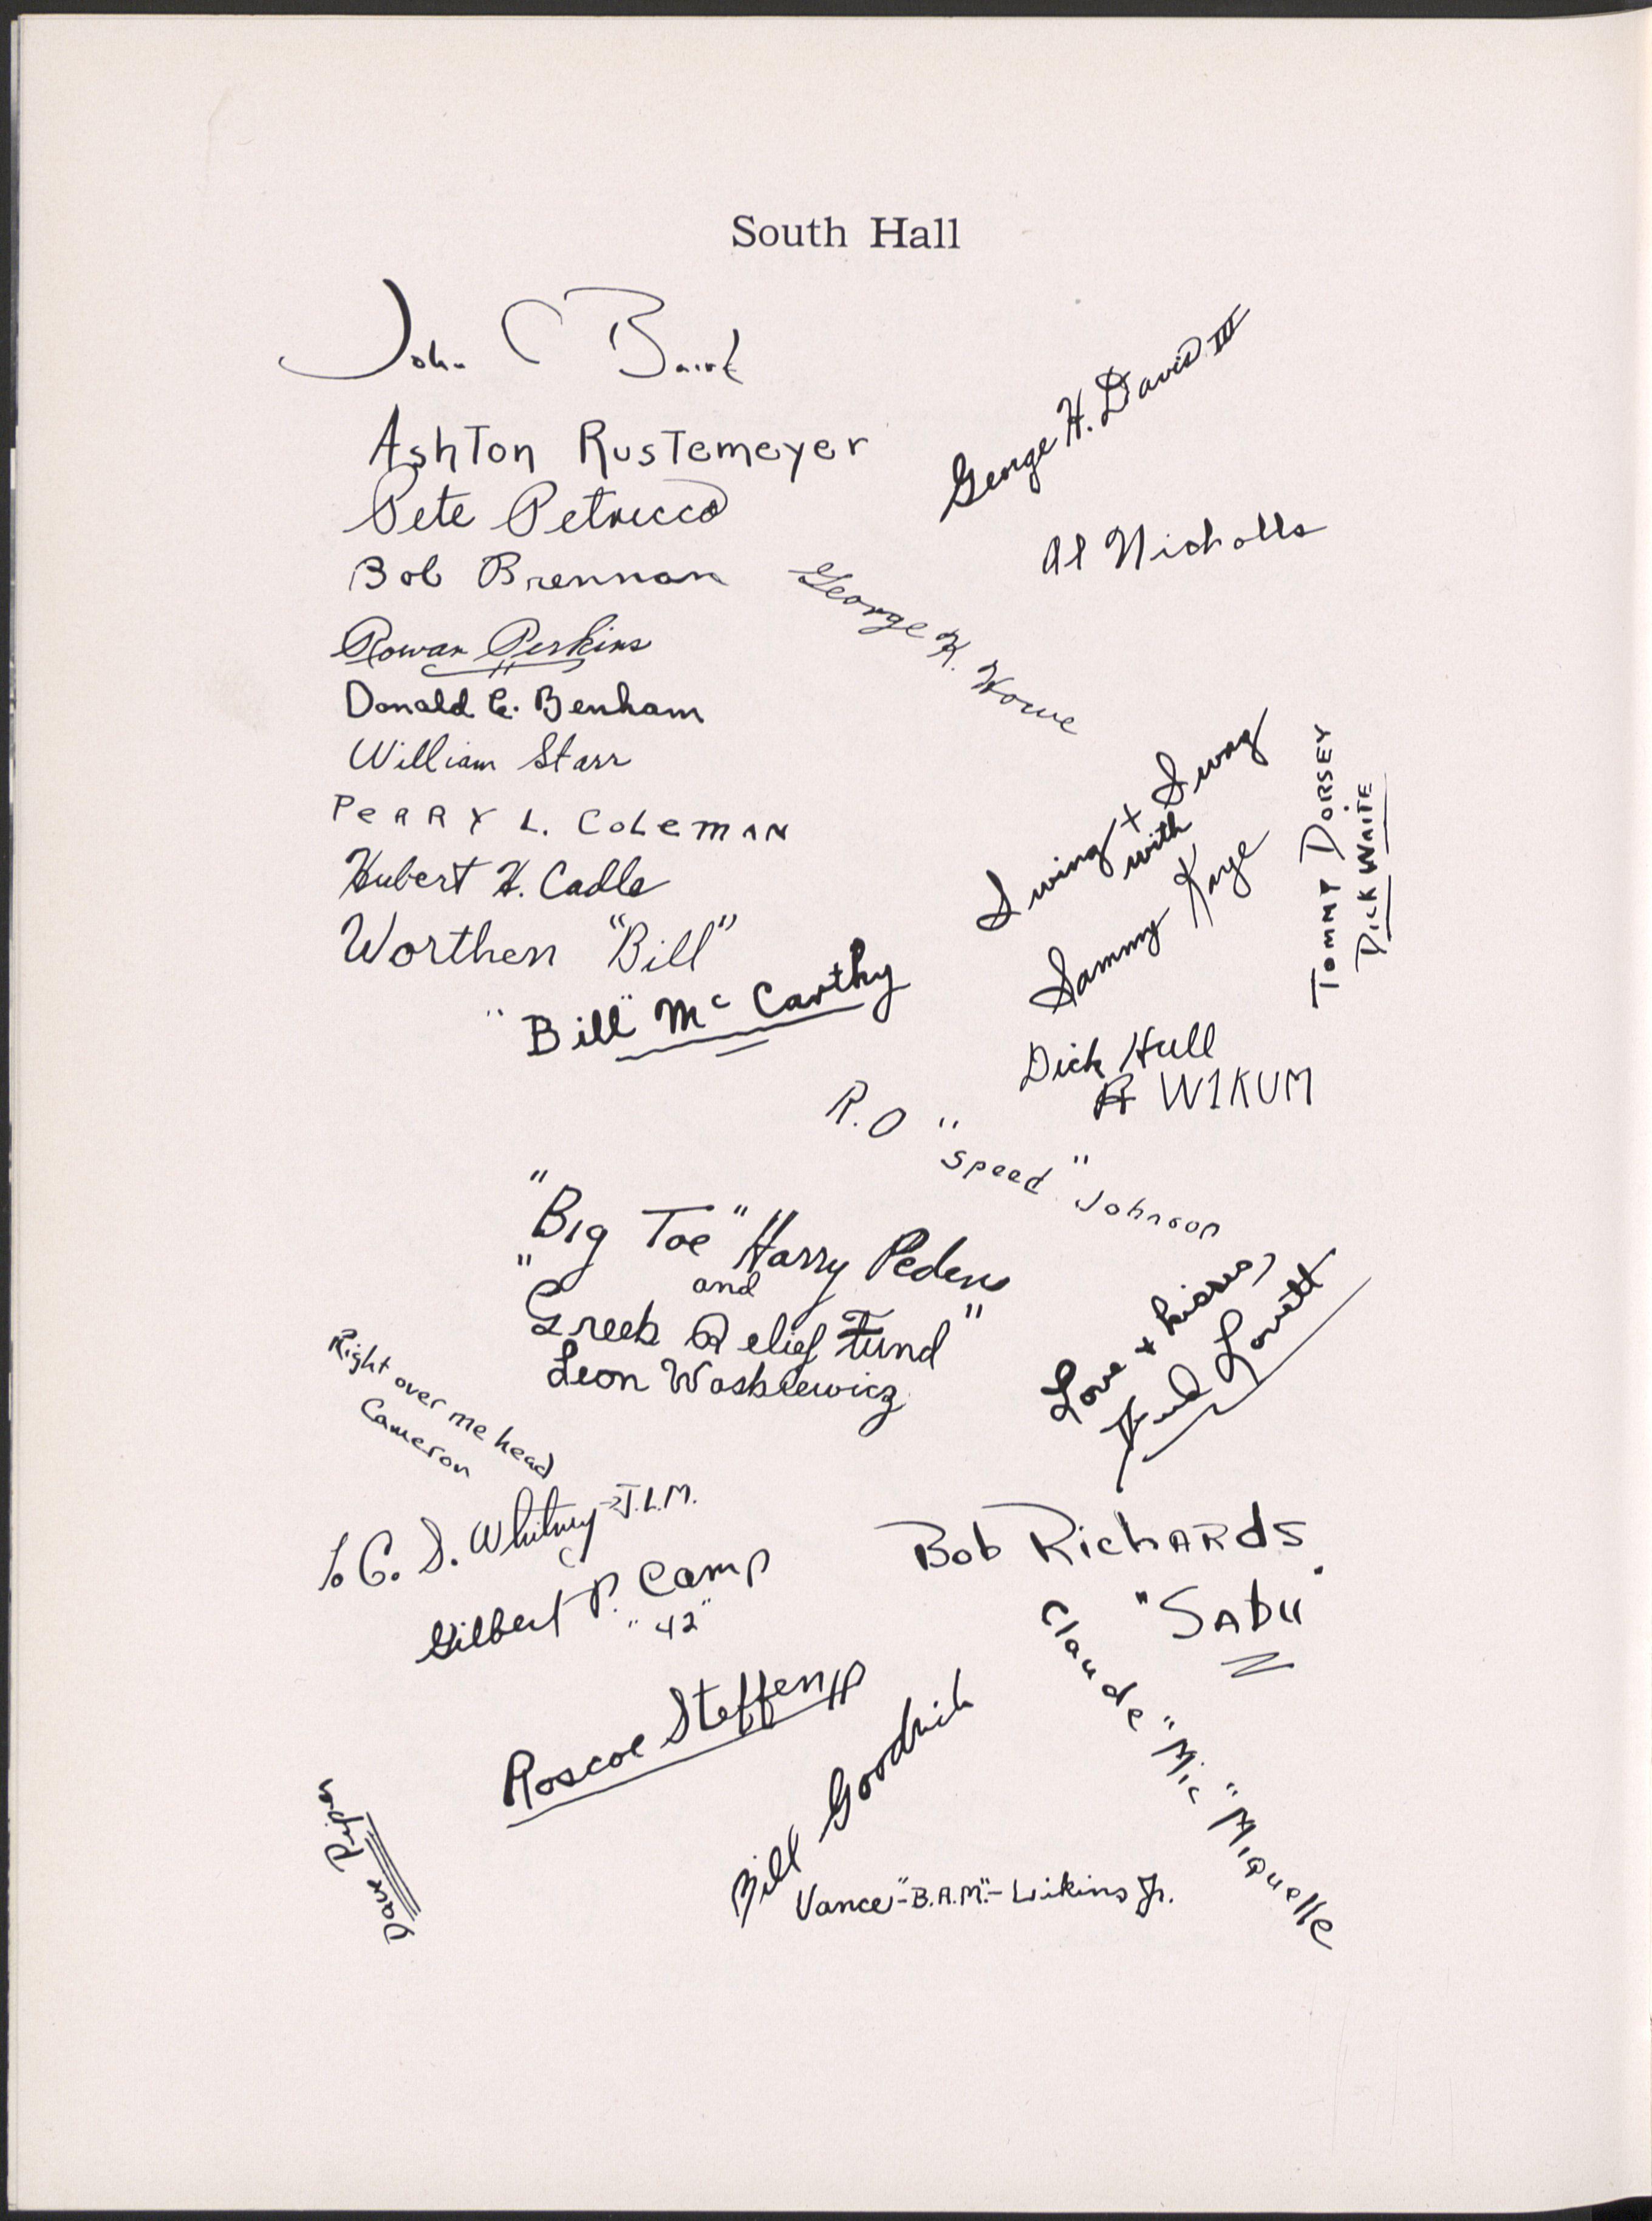 South Hall
John C Baird
Ashton Rustemeyer
Pete Petricco
Bob Brennan
Rowan Perkins
Donald C. Benham
William Starr
PERRY L. COLEMAN
Hubert H. Cadle
Worthen "Bill"
"Bill" McCarthy
George H. Davis III
Al Nicholls
George K. Howe
Swing + Sway
with
Sammy Kaye
TOMMY DORSEY
DICK WAITE
Dick Hull
W1KUM
R.O "Speed" Johnson
"Big Toe" Harry Pedens
and
"Greek Relief Fund"
Leon Waskiewicz
Love + kisses,
Lovett
Right over me head
Cameron
S. Whitney J.L.M.
Gilbert P. Camp
"42"
Bob Richards
"SABU"
Roscoe Steffen
Bill Goodrich
Claude "Mic" Miquelle
Vance "-B.A.M."- Likins Jr.
Dave